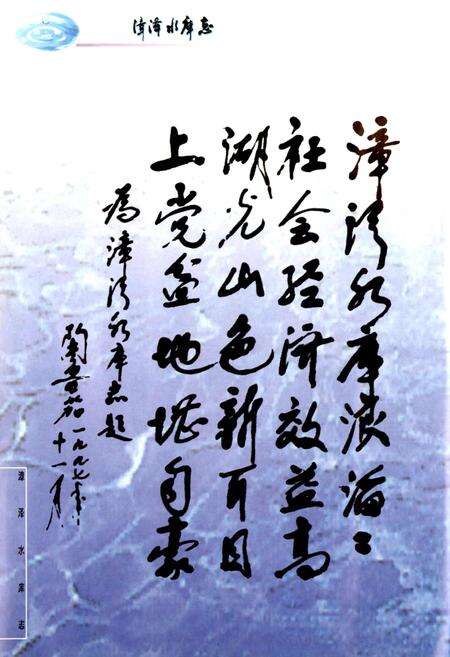 漳泽水库志
漳泽水库浪滔滔
社会经济效益高
湖光山色新耳目
上党盆地堪自豪
为漳泽水库志题
一九九七年
十一月
漳泽水库志